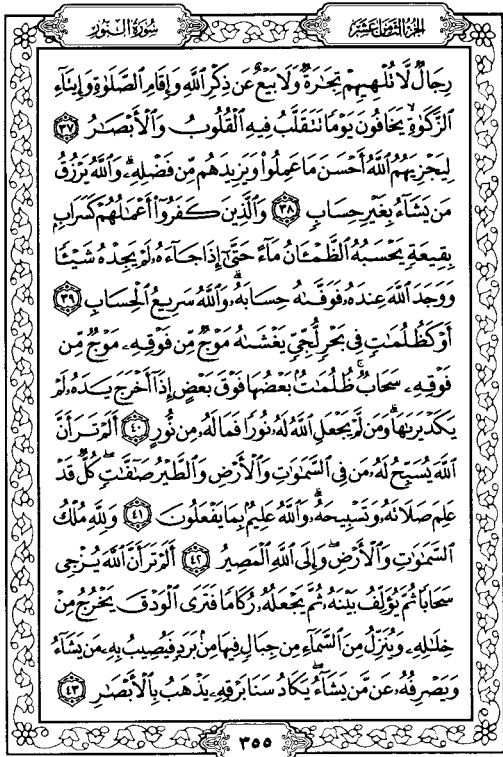 سُورَةُ النُّورِ
الجزء الثامن عشر
رِجَالٌ لَّا تُلْهِيهِمْ تِجَٰرَةٌ وَلَا بَيْعٌ عَن ذِكْرِ ٱللَّهِ وَإِقَامِ ٱلصَّلَوٰةِ وَإِيتَآءِ
ٱلزَّكَوٰةِ يَخَافُونَ يَوْمًا تَتَقَلَّبُ فِيهِ ٱلْقُلُوبُ وَٱلْأَبْصَٰرُ ٣٧
لِيَجْزِيَهُمُ ٱللَّهُ أَحْسَنَ مَا عَمِلُوا۟ وَيَزِيدَهُم مِّن فَضْلِهِۦ وَٱللَّهُ يَرْزُقُ
مَن يَشَآءُ بِغَيْرِ حِسَابٍ ٣٨ وَٱلَّذِينَ كَفَرُوٓا۟ أَعْمَٰلُهُمْ كَسَرَابٍۭ
بِقِيعَةٍ يَحْسَبُهُ ٱلظَّمْـَٔانُ مَآءً حَتَّىٰٓ إِذَا جَآءَهُۥ لَمْ يَجِدْهُ شَيْـًٔا
وَوَجَدَ ٱللَّهَ عِندَهُۥ فَوَفَّىٰهُ حِسَابَهُۥ وَٱللَّهُ سَرِيعُ ٱلْحِسَابِ ٣٩
أَوْ كَظُلُمَٰتٍ فِى بَحْرٍ لُّجِّىٍّ يَغْشَىٰهُ مَوْجٌ مِّن فَوْقِهِۦ مَوْجٌ مِّن
فَوْقِهِۦ سَحَابٌ ظُلُمَٰتٌۢ بَعْضُهَا فَوْقَ بَعْضٍ إِذَآ أَخْرَجَ يَدَهُۥ لَمْ
يَكَدْ يَرَىٰهَا وَمَن لَّمْ يَجْعَلِ ٱللَّهُ لَهُۥ نُورًا فَمَا لَهُۥ مِن نُّورٍ ٤٠ أَلَمْ تَرَ أَنَّ
ٱللَّهَ يُسَبِّحُ لَهُۥ مَن فِى ٱلسَّمَٰوَٰتِ وَٱلْأَرْضِ وَٱلطَّيْرُ صَٰٓفَّٰتٍ كُلٌّ قَدْ
عَلِمَ صَلَاتَهُۥ وَتَسْبِيحَهُۥ وَٱللَّهُ عَلِيمٌۢ بِمَا يَفْعَلُونَ ٤١ وَلِلَّهِ مُلْكُ
ٱلسَّمَٰوَٰتِ وَٱلْأَرْضِ وَإِلَى ٱللَّهِ ٱلْمَصِيرُ ٤٢ أَلَمْ تَرَ أَنَّ ٱللَّهَ يُزْجِى
سَحَابًا ثُمَّ يُؤَلِّفُ بَيْنَهُۥ ثُمَّ يَجْعَلُهُۥ رُكَامًا فَتَرَى ٱلْوَدْقَ يَخْرُجُ مِنْ
خِلَٰلِهِۦ وَيُنَزِّلُ مِنَ ٱلسَّمَآءِ مِن جِبَالٍ فِيهَا مِنۢ بَرَدٍ فَيُصِيبُ بِهِۦ مَن يَشَآءُ
وَيَصْرِفُهُۥ عَن مَّن يَشَآءُ يَكَادُ سَنَا بَرْقِهِۦ يَذْهَبُ بِٱلْأَبْصَٰرِ ٤٣
٣٥٥